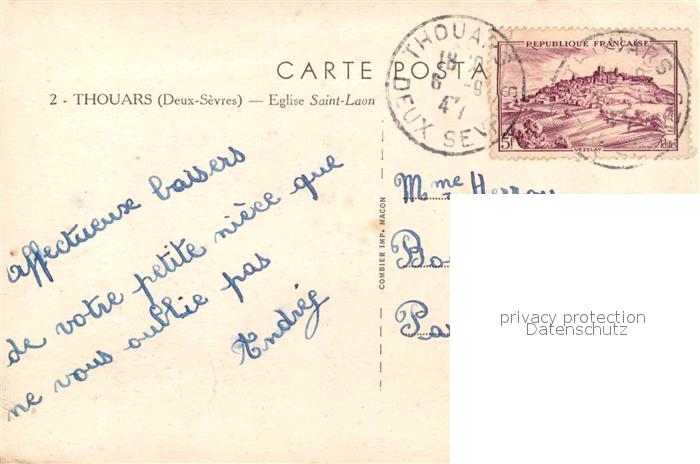 CARTE POSTA
2 - THOUARS (Deux-Sèvres) — Eglise Saint-Laon
REPUBLIQUE FRANÇAISE
5F
VEZELAY
THOUARS
18
6
47
DEUX SEVRES
affectueux baisers
de votre petite nièce que
ne vous oublie pas
COMBIER IMP. MACON
Mme
privacy protection
Datenschutz